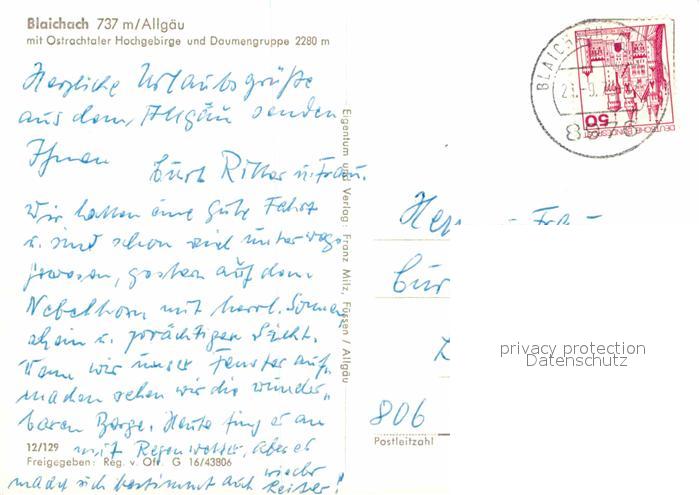 Blaichach 737 m/Allgäu
mit Ostrachtaler Hochgebirge und Daumengruppe 2280 m
Herzliche Urlaubsgrüße
aus dem Allgäu senden
Ihnen Curt Ritter u. Frau.
Wir hatten eine gute Fahrt
u. sind schon viel unterwegs
gewesen, gestern auf dem
Nebelhorn mit herrl. Sonnen
schein u. prächtigen Sicht.
Wenn wir unser Fenster auf
machen sehen wir die wunder
baren Berge. Heute fing es an
mit Regenwetter, aber es
macht sich bestimmt auch wieder heiter!
12/129
Freigegeben: Reg. v. Obb. G 16/43806
Eigentum und Verlag: Franz Milz, Füssen / Allgäu
BLAICH
50
DEUTSCHE BUNDESPOST
Cur
806
Postleitzahl
privacy protection
Datenschutz